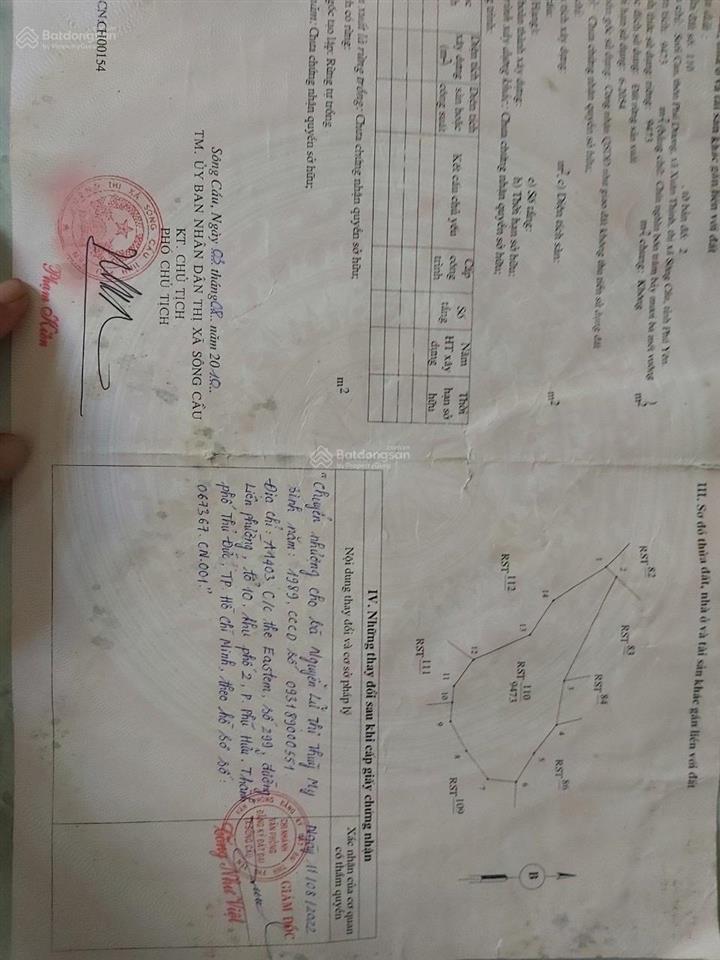 II. Thửa đất, nhà ở và tài sản khác gắn liền với đất
thửa đất số: 110 , tờ bản đồ: 2
chỉ: Suối Cau, thôn Phú Dương, xã Xuân Thịnh, thị xã Sông Cầu, tỉnh Phú Yên
tích: 9473 m² (bằng chữ: Chín nghìn bốn trăm bảy mươi ba mét vuông )
thức sử dụng: riêng: 9473 m² chung: Không m²
đích sử dụng: Đất rừng sản xuất
hạn sử dụng: 6-2054
gốc sử dụng: Công nhận QSDĐ như giao đất không thu tiền sử dụng đất
Chưa chứng nhận quyền sở hữu;
tích xây dựng: m², c) Diện tích sàn: m²
e) Số tầng:
Hạng:
h) Thời hạn sở hữu:
hoàn thành xây dựng:
trình xây dựng khác: Chưa chứng nhận quyền sở hữu;
trình:
Diện tích xây dựng (m²)
Diện tích sàn hoặc công suất
Kết cấu chủ yếu
Cấp công trình
Số tầng
Năm HT xây dựng
Thời hạn sở hữu
xuất là rừng trồng: Chưa chứng nhận quyền sở hữu;
ích có rừng: m²
gốc tạo lập: Rừng tự trồng
năm: Chưa chứng nhận quyền sở hữu;
Sông Cầu, Ngày 03. tháng 08. năm 2010.
TM. ỦY BAN NHÂN DÂN THỊ XÃ SÔNG CẦU
KT. CHỦ TỊCH
PHÓ CHỦ TỊCH
THỊ XÃ SÔNG CẦU
Phạm Hiên
CN:CH00154
III. Sơ đồ thửa đất, nhà ở và tài sản khác gắn liền với đất
RST 82
RST 83
RST 84
RST 86
RST 109
RST 111
RST 112
RST 110
9473
1
2
3
4
5
6
7
8
9
10
11
12
13
14
B
IV. Những thay đổi sau khi cấp giấy chứng nhận
Nội dung thay đổi và cơ sở pháp lý
Xác nhận của cơ quan có thẩm quyền
" Chuyển nhượng cho bà Nguyễn Lữ Thị Thuy My
sinh năm: 1989, CCCD số 093189000551
Địa chỉ: A1403 C/c the Eastern, số 299, đường
Liên phường, tổ 10, khu phố 2, P. Phú Hữu, Thành
phố Thủ Đức, TP. Hồ Chí Minh, theo hồ sơ số:
067367.CN.001."
Ngày 11/08/2022
GIÁM ĐỐC
CHI NHÁNH
VĂN PHÒNG
ĐĂNG KÝ ĐẤT ĐAI
Batdongsan
by PropertyGuru
Batdongsan
by PropertyGuru
Batdongsan
by PropertyGuru